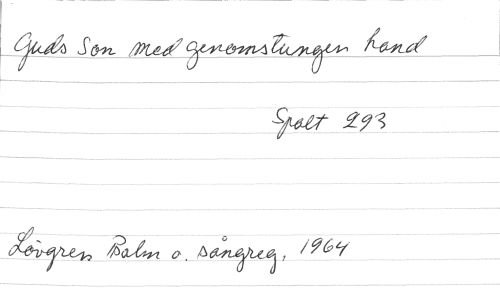 Guds Son med genomstungen hand
Spalt 293
Lövgren Psalm o. sångreg, 1964